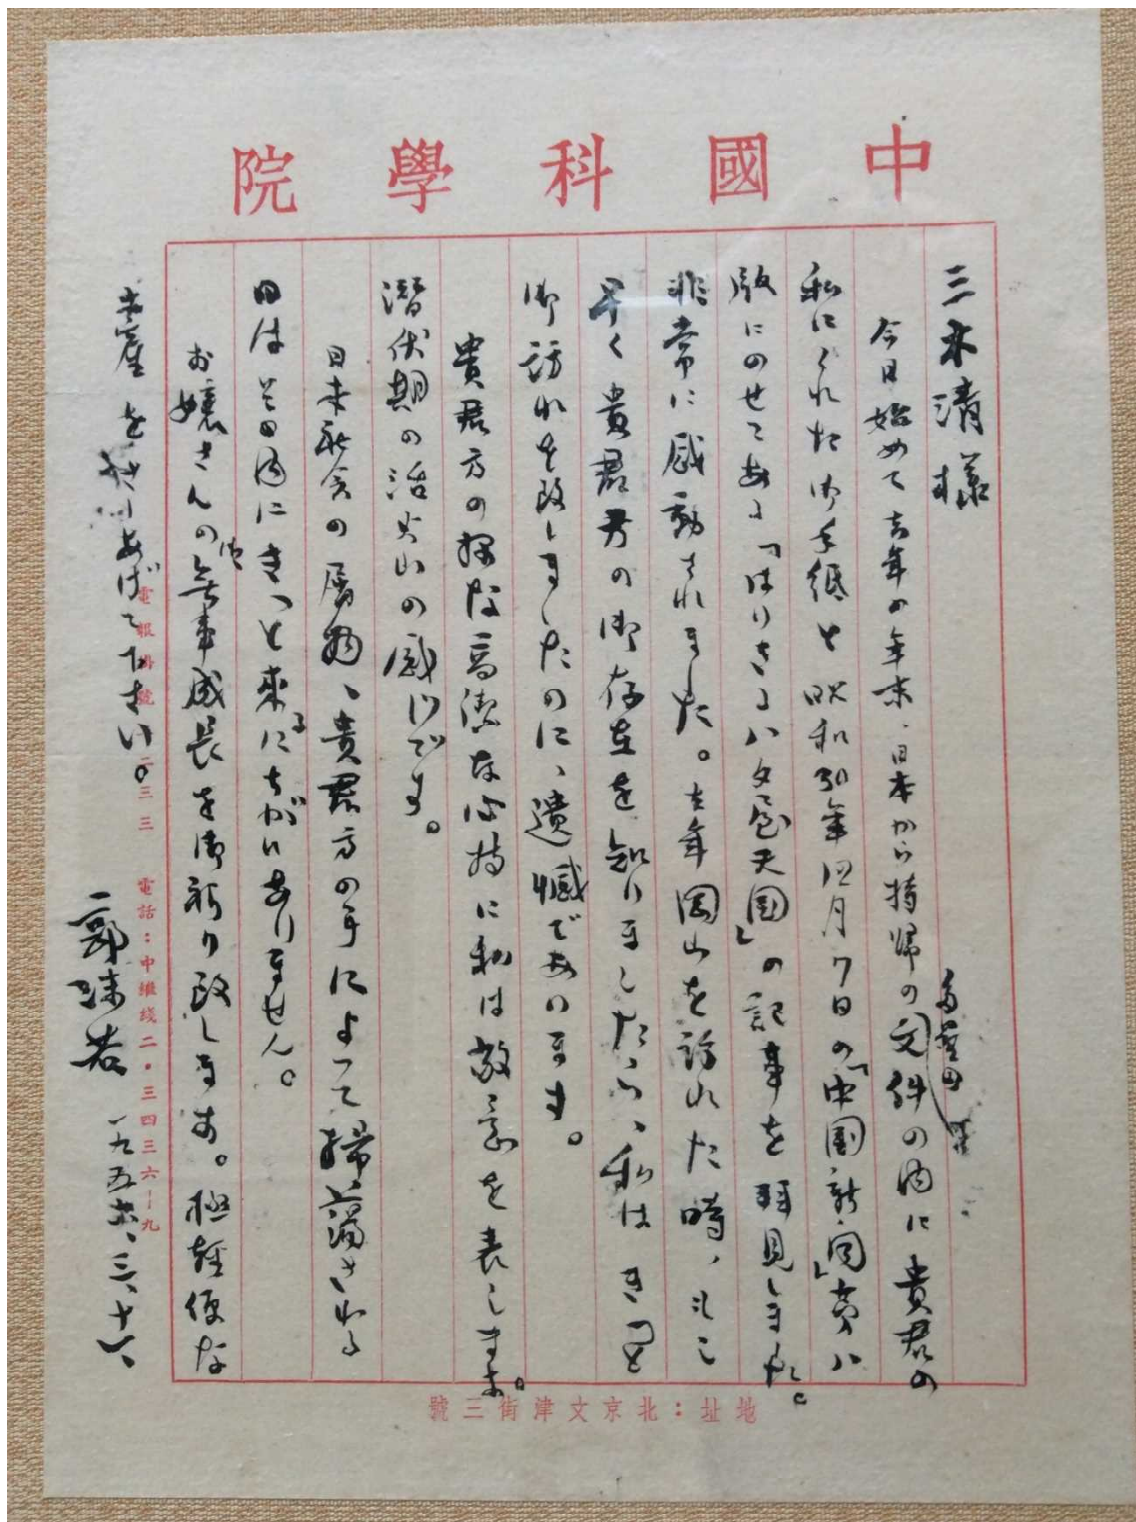 中國科學院
三木清様
今日始めて去年の年末、日本から持帰の文件の内に貴君の
私にくれた御手紙と昭和30年12月7日の「中国新聞」第八
版にのせてある「はりさる八夕天国」の記事を拝見しました。
非常に感動されました。去年岡山を訪れた時、もし
早く貴君方の御存在を知りましたら、私はきっと
御訪れを致しましたのに、遺憾であります。
貴君方の様な高潔な心持に私は敬意を表します。
潜伏期の活火山の感じです。
日本社会の廃物、貴君方の手によって掃蕩される
日はその内にきっと来るにちがいありません。
お嬢さんの御無事成長を御祈り致します。極軽便な
をさしあげて下さい。
郭沫若 一九五六、三、十六
電報掛號：二三三三 電話：中繼綫二·三四三六－九
地址：北京文津街三號